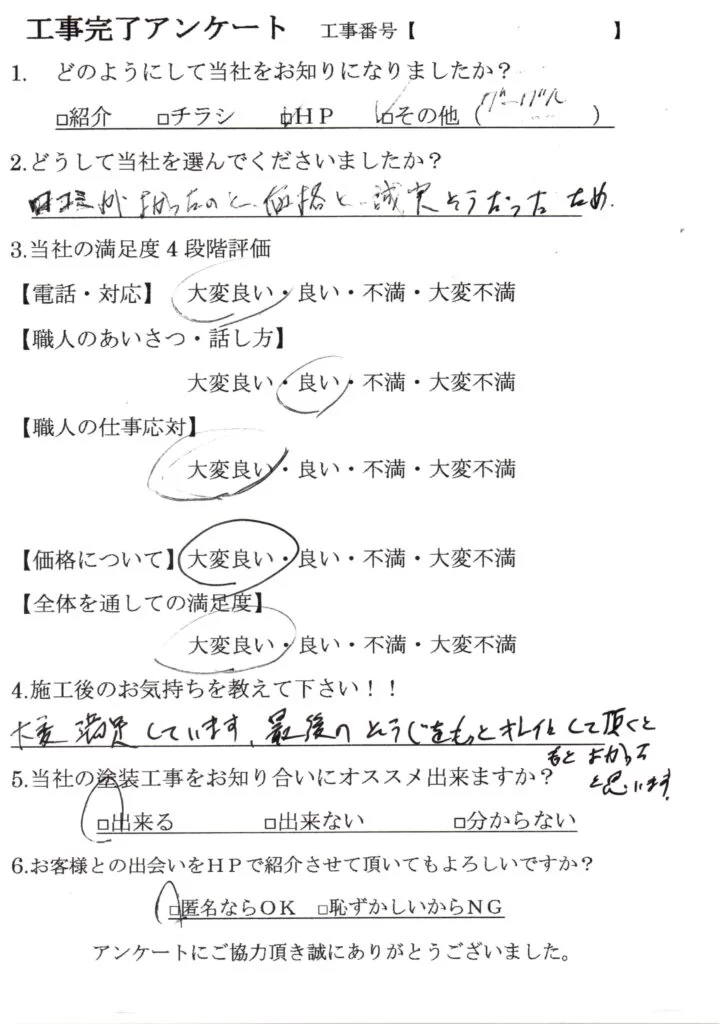 工事完了アンケート 工事番号【 】
1. どのようにして当社をお知りになりましたか？
□紹介 □チラシ □HP □その他（グーグル）
2.どうして当社を選んでくださいましたか？
口コミが よかったのと 価格と 誠実そうだったため.
3.当社の満足度４段階評価
【電話・対応】 大変良い・良い・不満・大変不満
【職人のあいさつ・話し方】
大変良い・良い・不満・大変不満
【職人の仕事応対】
大変良い・良い・不満・大変不満
【価格について】大変良い・良い・不満・大変不満
【全体を通しての満足度】
大変良い・良い・不満・大変不満
4.施工後のお気持ちを教えて下さい！！
大変 満足 しています、最後の そうじをもっとキレイにして頂くと
もっと よかった
と思います
5.当社の塗装工事をお知り合いにオススメ出来ますか？
□出来る □出来ない □分からない
6.お客様との出会いをＨＰで紹介させて頂いてもよろしいですか？
□匿名ならＯＫ □恥ずかしいからＮＧ
アンケートにご協力頂き誠にありがとうございました。